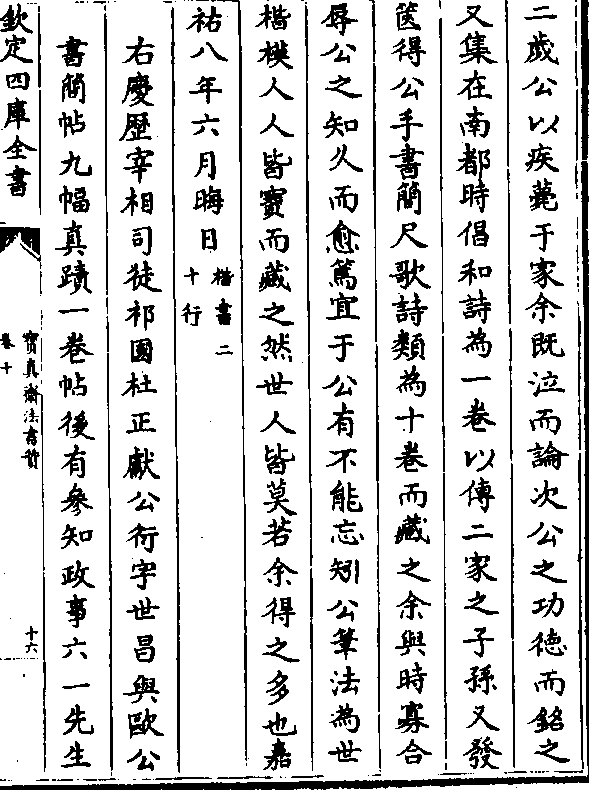 二歲公以疾薨于家余既泣而論次公之功徳而銘之
又集在南都時倡和詩為一巻以傳二家之子孫又發
篋得公手書簡尺歌詩類為十巻而藏之余與時寡合
辱公之知久而愈篤宜于公有不能忘矧公筆法為世
楷模人人皆寶而藏之然世人皆莫若余得之多也嘉
祐八年六月晦日楷書二
十行
右慶歴宰相司徒祁國杜正獻公衍字世昌與歐公
書簡帖九幅真蹟一巻帖後有參知政事六一先生
欽定四庫全書
寳真齋法書贊
卷十
十六